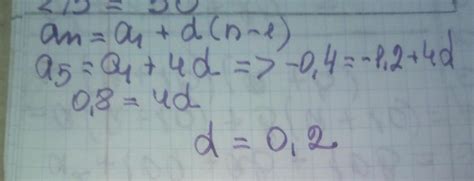 2/3 = 30
an = a1 + d(n-1)
a5 = a1 + 4d => -0,4 = -1,2 + 4d
0,8 = 4d
d = 0,2